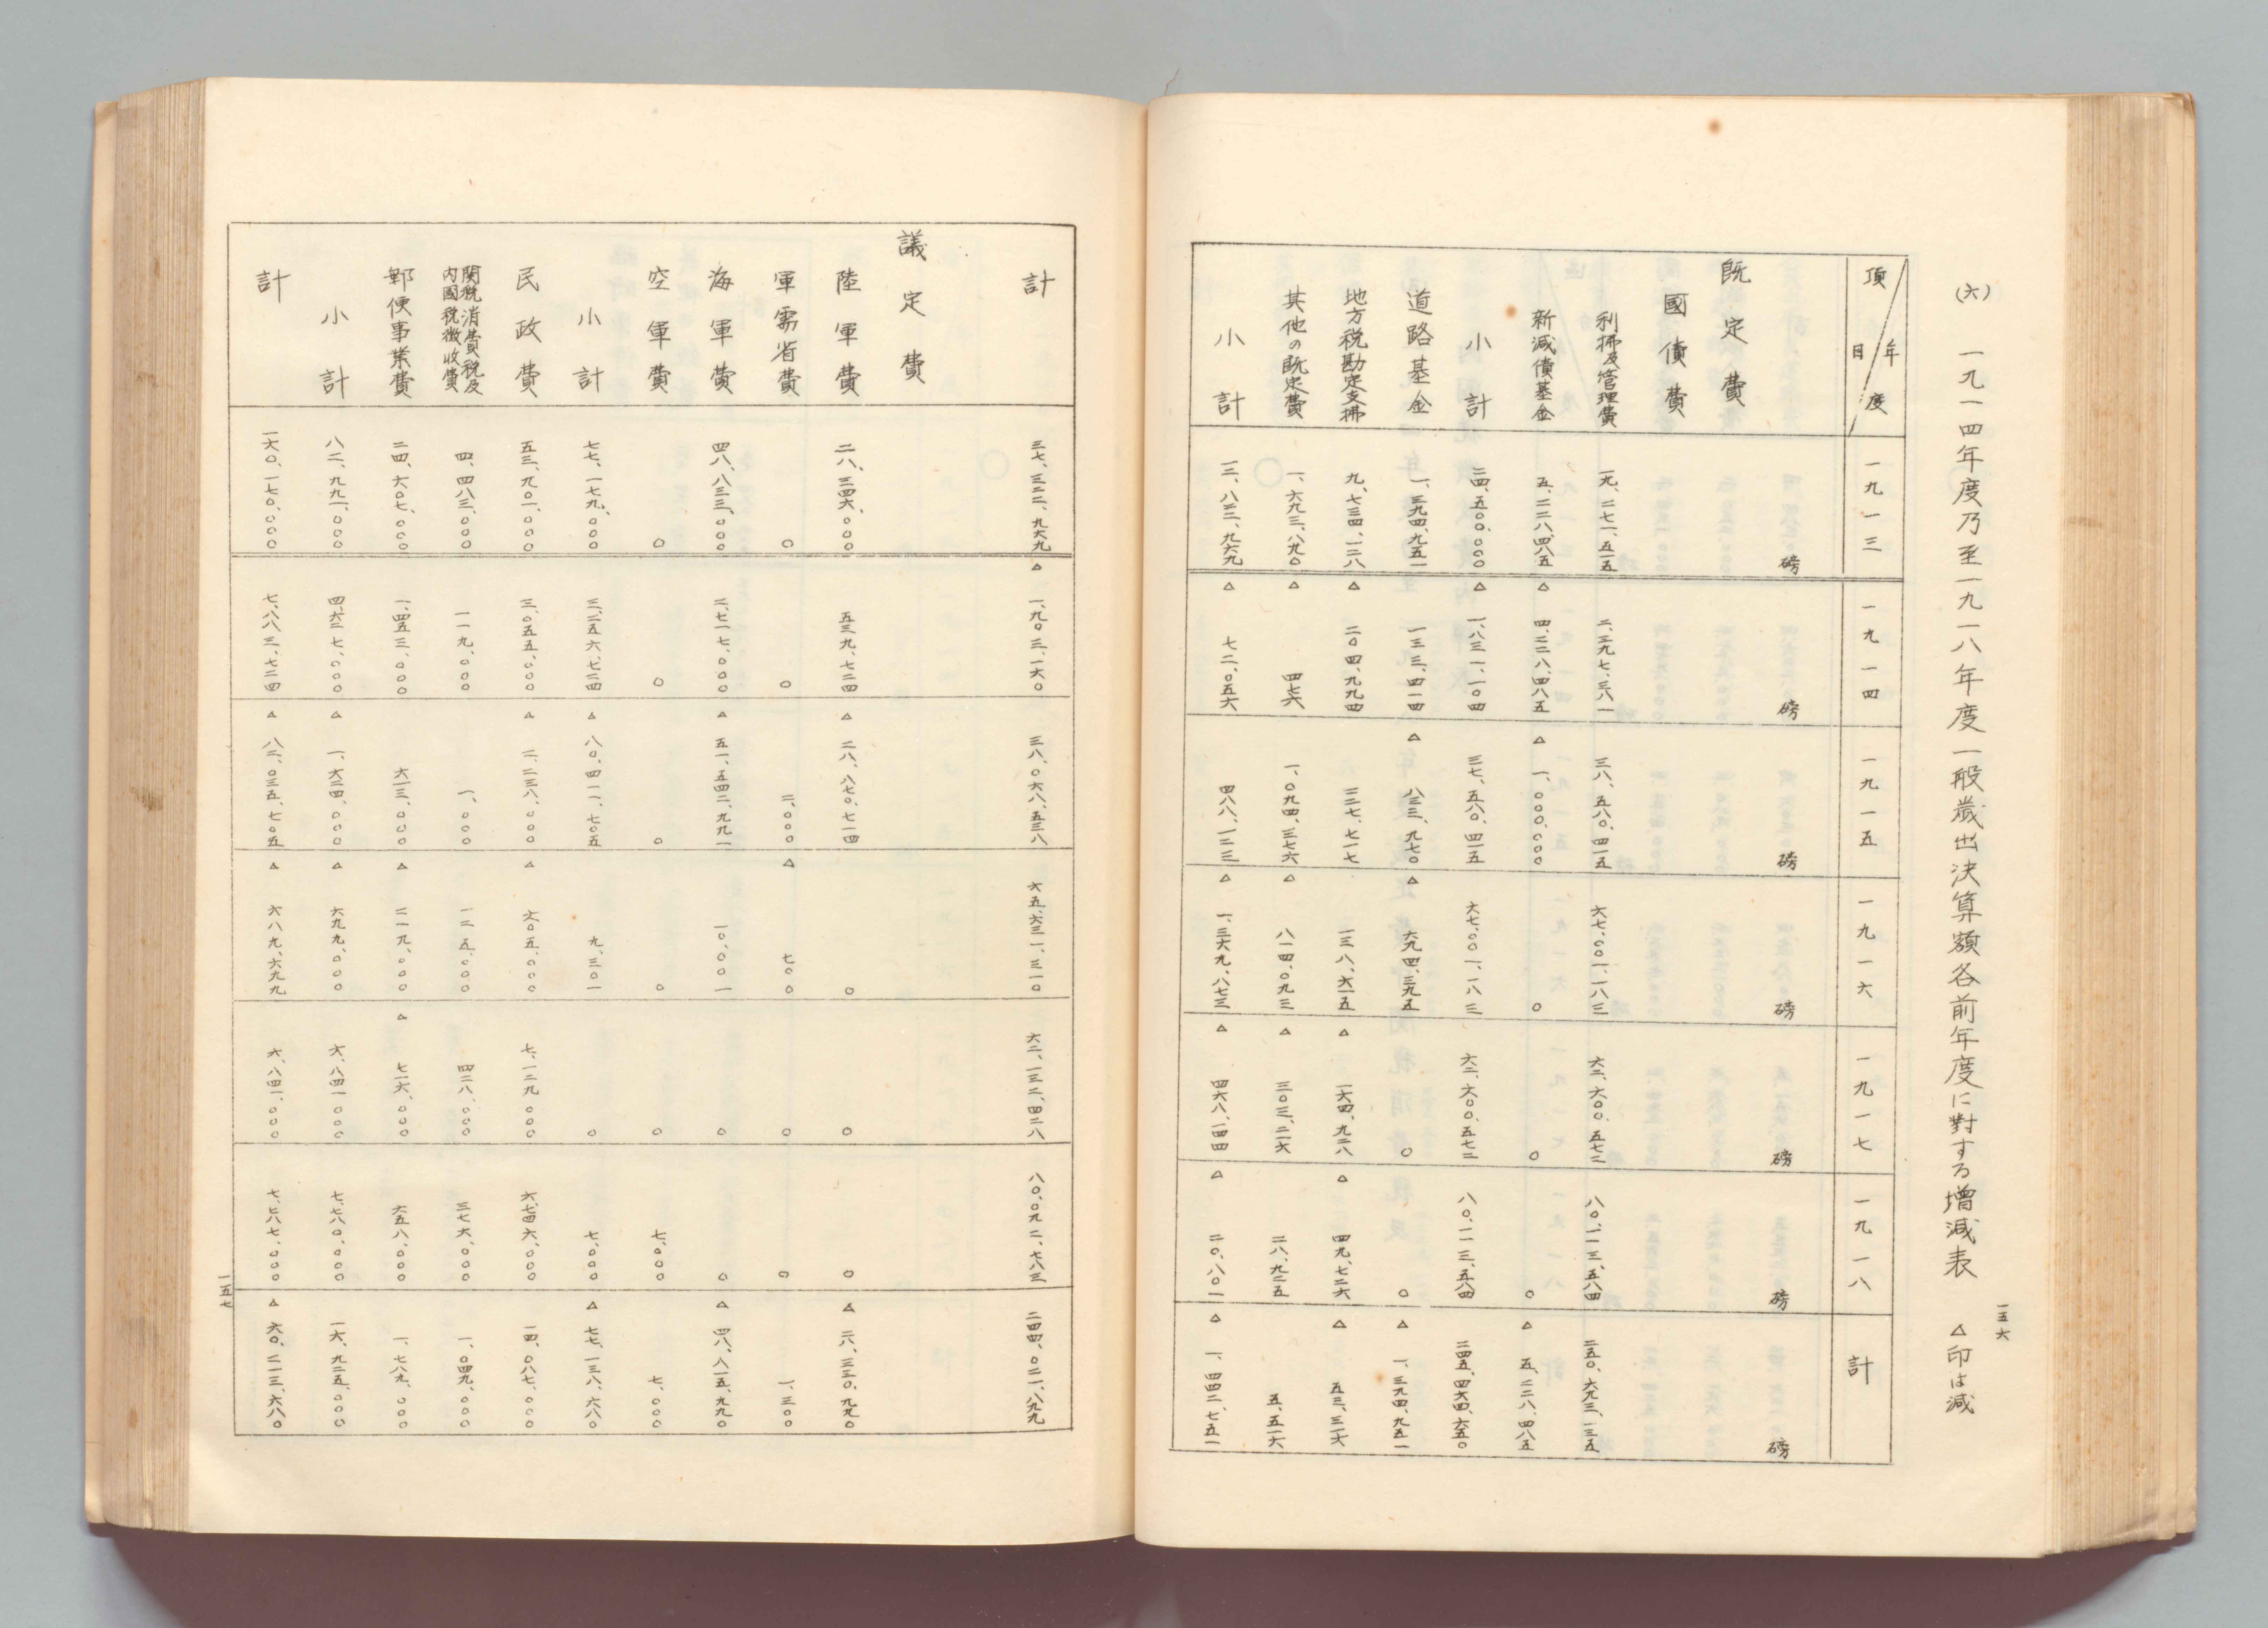 一五六
(六) 一九一四年度乃至一九一八年度一般歳出決算額各前年度に對する増減表 △印は減
頂日 年度 一九一三 一九一四 一九一五 一九一六 一九一七 一九一八 計
磅 磅 磅 磅 磅 磅 磅
既定費
國債費
利拂及管理費 一九、二七一、五一五 二、三九七、三八一 三八、五八〇、四一五 六七、〇〇一、一八三 六二、六〇〇、五七二 八〇、一一三、五八四 二五〇、六九三、一三五
新減債基金 五、二二八、四八五 △ 四、二二八、四八五 △ 一、〇〇〇、〇〇〇 〇 〇 〇 △ 五、二二八、四八五
小計 二四、五〇〇、〇〇〇 △ 一、八三一、一〇四 三七、五八〇、四一五 六七、〇〇一、一八三 六二、六〇〇、五七二 八〇、一一三、五八四 二四五、四六四、六五〇
道路基金 一、三九四、九五一 一三三、四一四 △ 八三三、九七〇 △ 六九四、三九五 〇 〇 △ 一、三九四、九五一
地方税勘定支拂 九、七三四、一二八 △ 二〇四、九九四 二二七、七一七 一三八、六一五 △ 一六四、九二八 △ 四九、七二六 △ 五三、三一六
其他の既定費 一、六九三、八九〇 △ 四七六 一、〇九四、三七六 △ 八一四、〇九三 △ 三〇三、二一六 二八、九二五 五、五一六
小計 一二、八二二、九六九 △ 七二、〇五六 四八八、一二三 △ 一、三六九、八七三 △ 四六八、一四四 △ 二〇、八〇一 △ 一、四四二、七五一
計 三七、三二二、九六九 △ 一、九〇三、一六〇 三八、〇六八、五三八 六五、六三一、三一〇 六二、一三二、四二八 八〇、〇九二、七八三 二四四、〇二一、八九九
議定費
陸軍費 二八、三四六、〇〇〇 五三九、七二四 △ 二八、八七〇、七一四 〇 〇 〇 △ 二八、三三〇、九九〇
軍需省費 〇 〇 二、〇〇〇 △ 七〇〇 〇 〇 一、三〇〇
海軍費 四八、八三三、〇〇〇 二、七一七、〇〇〇 △ 五一、五四二、九九一 一〇、〇〇一 〇 〇 △ 四八、八一五、九九〇
空軍費 〇 〇 〇 〇 〇 七、〇〇〇 七、〇〇〇
小計 七七、一七九、〇〇〇 三、二五六、七二四 △ 八〇、四一一、七〇五 九、三〇一 〇 七、〇〇〇 △ 七七、一三八、六八〇
民政費 五三、九〇一、〇〇〇 三、〇五五、〇〇〇 △ 二、二三八、〇〇〇 △ 六〇五、〇〇〇 七、一二九、〇〇〇 六、七四六、〇〇〇 一四、〇八七、〇〇〇
関税消費税及内國税徴收費 四、四八三、〇〇〇 一一九、〇〇〇 一、〇〇〇 一二五、〇〇〇 四二八、〇〇〇 三七六、〇〇〇 一、〇四九、〇〇〇
郵便事業費 二四、六〇七、〇〇〇 一、四五三、〇〇〇 六一三、〇〇〇 △ 二一九、〇〇〇 △ 七一六、〇〇〇 六五八、〇〇〇 一、七八九、〇〇〇
小計 八二、九九一、〇〇〇 四、六二七、〇〇〇 △ 一、六二四、〇〇〇 △ 六九九、〇〇〇 六、八四一、〇〇〇 七、七八〇、〇〇〇 一六、九二五、〇〇〇
計 一六〇、一七〇、〇〇〇 七、八八三、七二四 △ 八二、〇三五、七〇五 △ 六八九、六九九 六、八四一、〇〇〇 七、七八七、〇〇〇 △ 六〇、二一三、六八〇
一五七